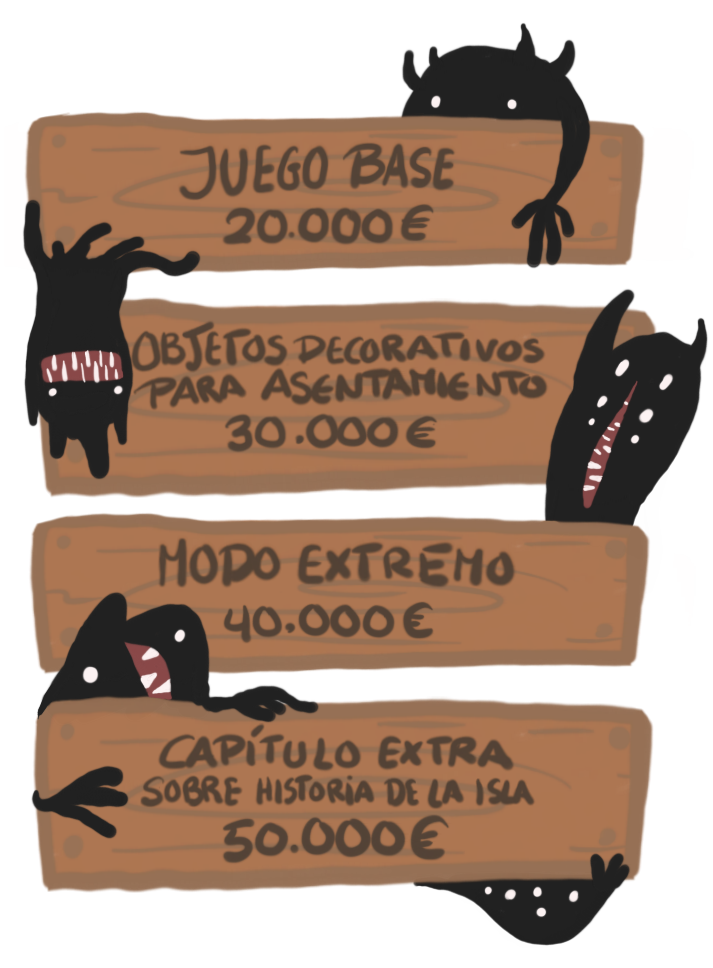 JUEGO BASE
20.000€
OBJETOS DECORATIVOS
PARA ASENTAMIENTO
30.000€
MODO EXTREMO
40.000€
CAPÍTULO EXTRA
SOBRE HISTORIA DE LA ISLA
50.000€